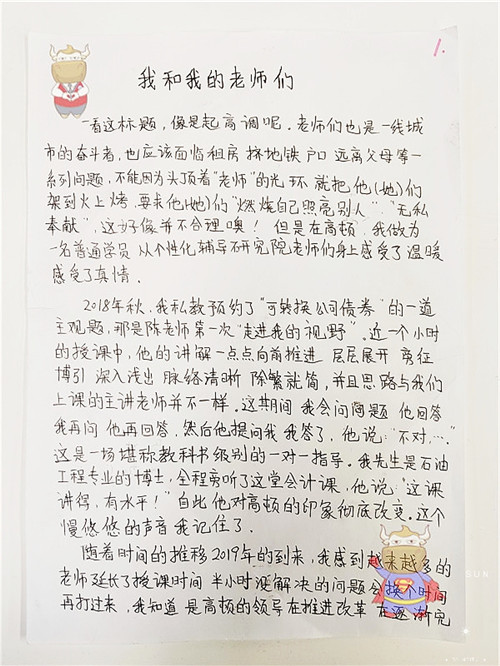 1.
我和我的老师们
一看这标题，像是起高调呢。老师们也是一线城
市的奋斗者，也应该面临租房 挤地铁 户口 远离父母等一
系列问题，不能因为头顶着“老师”的光环 就把他(她)们
架到火上烤，要求他(她)们“燃烧自己照亮别人”“无私
奉献”，这好像并不合理噢！但是在高顿，我做为
一名普通学员 从个性化辅导研究院老师们身上感受了温暖
感受了真情。
2018年秋，我私教预约了“可转换公司债券”的一道
主观题，那是陈老师第一次“走进我的视野”。近一个小时
的授课中，他的讲解一点点向前推进 层层展开 旁征
博引 深入浅出 脉络清晰 除繁就简，并且思路与我们
上课的主讲老师并不一样。这期间 我会问问题 他回答
我再问 他再回答，然后他提问我 我答了，他说：“不对…”
这是一场堪称教科书级别的一对一指导。我先生是石油
工程专业的博士，全程旁听了这堂会计课，他说：“这课
讲得，有水平！”自此他对高顿的印象彻底改变。这个
慢悠悠的声音 我记住了。
随着时间的推移2019年的到来，我感到越来越多的
老师延长了授课时间 半小时没解决的问题会换个时间
再打过来，我知道 是高顿的领导在推进改革 在逐渐完